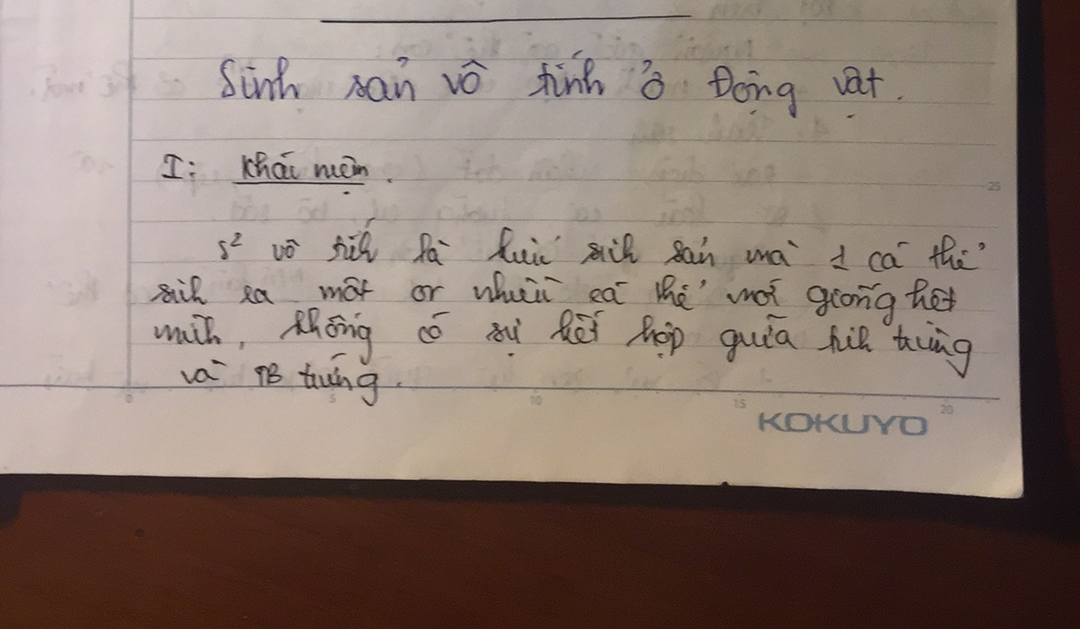 Sinh sản vô tính ở Động vật.
I: Khái niệm.
25
s² vô tíh là kiểu sih sản mà 1 cá thể
sih ra một or nhiều cá thể mới giống hệt
mìh, không có sự kết hợp giữa tih trùng
và TB trứng.
0 5 10 15 20
KOKUYO